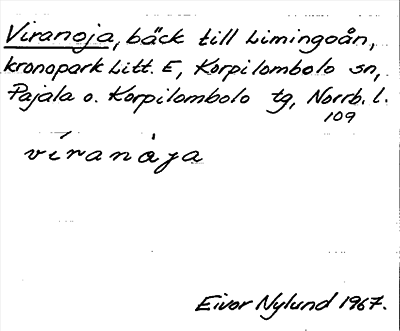 Viranoja, bäck till Limingoån,
kronopark Litt. E, Korpilombolo sn,
Pajala o. Korpilombolo tg, Norrb. l.
109
víranòja
Eivor Nylund 1967.